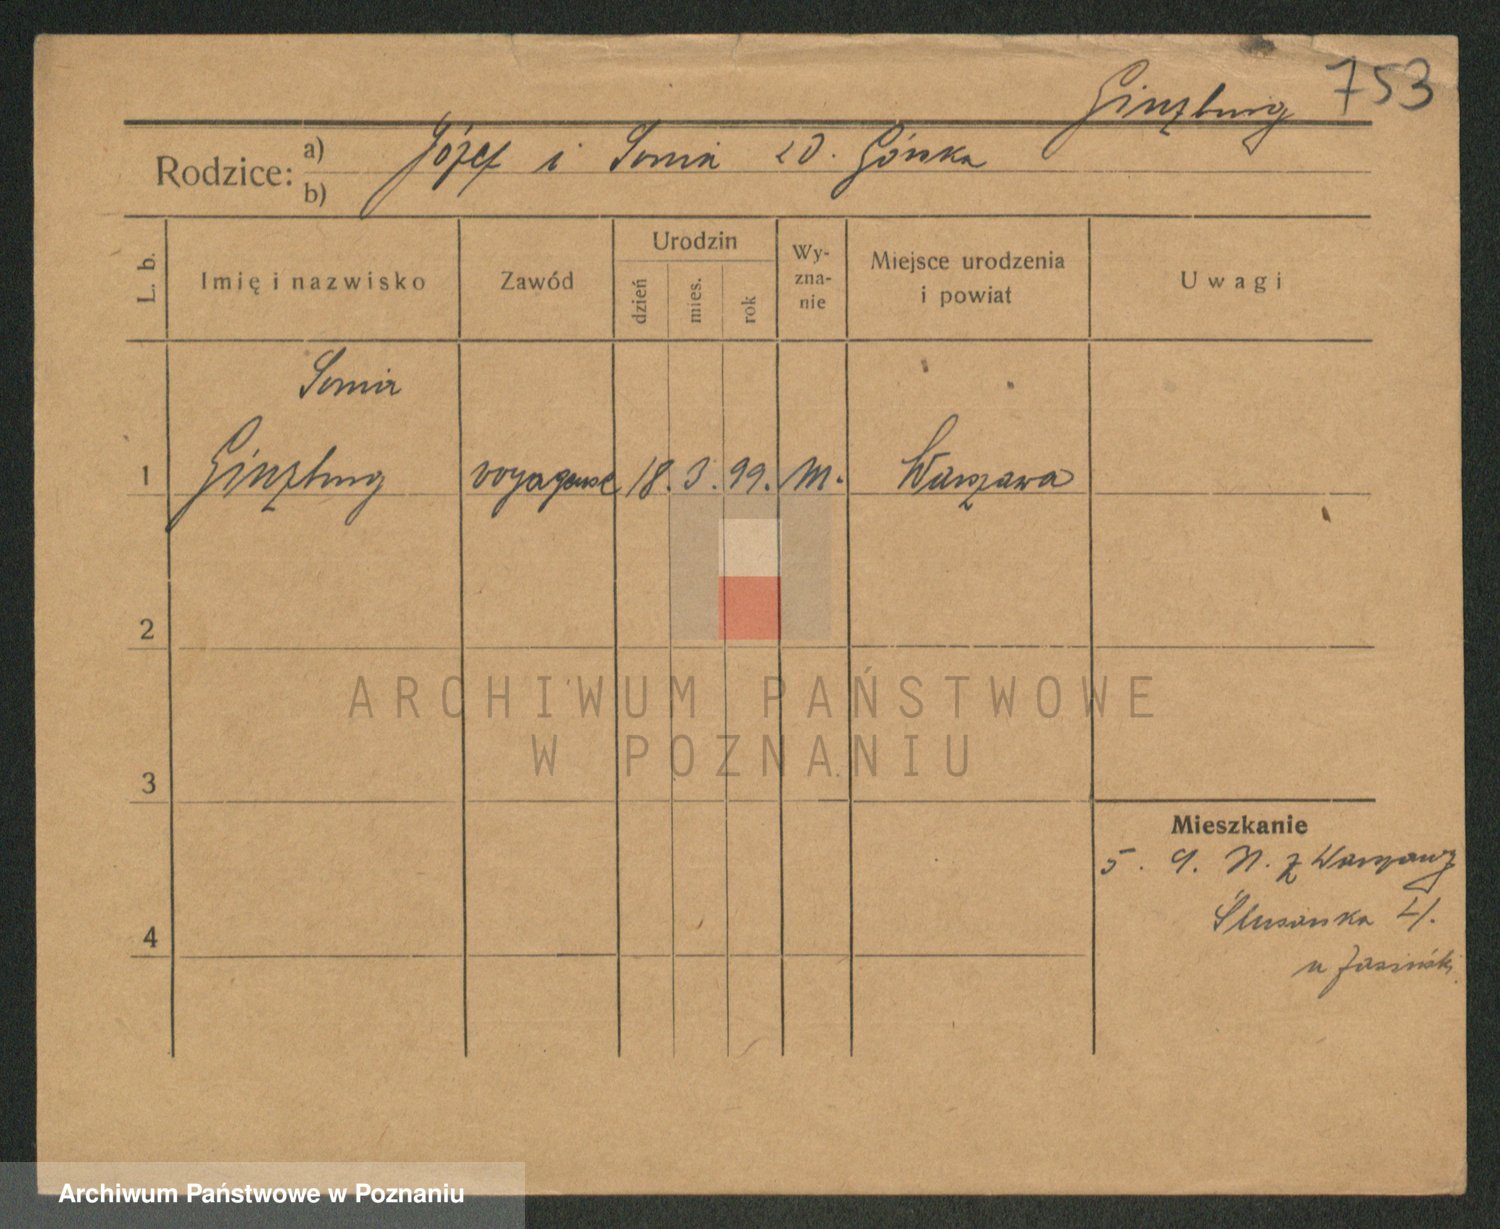 753
Ginzburg
Rodzice: a) Józef i Sonia zd. Górska
b)
L. b. Imię i nazwisko Zawód Urodzin dzień mies. rok Wy-zna-nie Miejsce urodzenia i powiat Uwagi
Sonia
1 Ginzburg 18. 3. 99. M. Warszawa
2
ARCHIWUM PAŃSTWOWE
W POZNANIU
3
Mieszkanie
5. 9. z Warszawy
4
u Jasiński
Archiwum Państwowe w Poznaniu